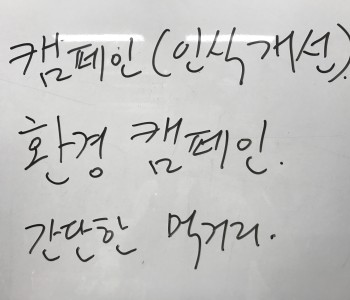 캠페인(인식개선).
환경 캠페인.
간단한 먹거리.